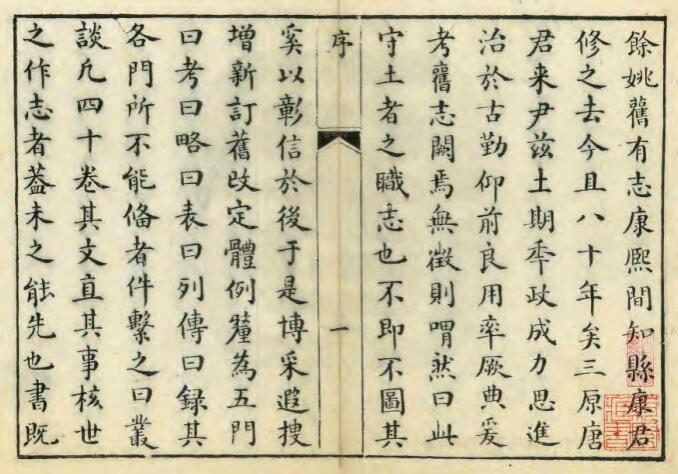 餘姚舊有志康熙間知縣康君
修之去今且八十年矣三原唐
君来尹兹土期年政成力思進
治於古勤仰前良用率厥典爰
考舊志闕焉無徴則喟然曰此
守土者之職志也不即不圖其
序
一
奚以彰信於後于是博采遐搜
增新訂舊改定體例釐為五門
曰考曰略曰表曰列傳曰録其
各門所不能俻者件繫之曰叢
談凢四十卷其文直其事核世
之作志者葢未之能先也書既